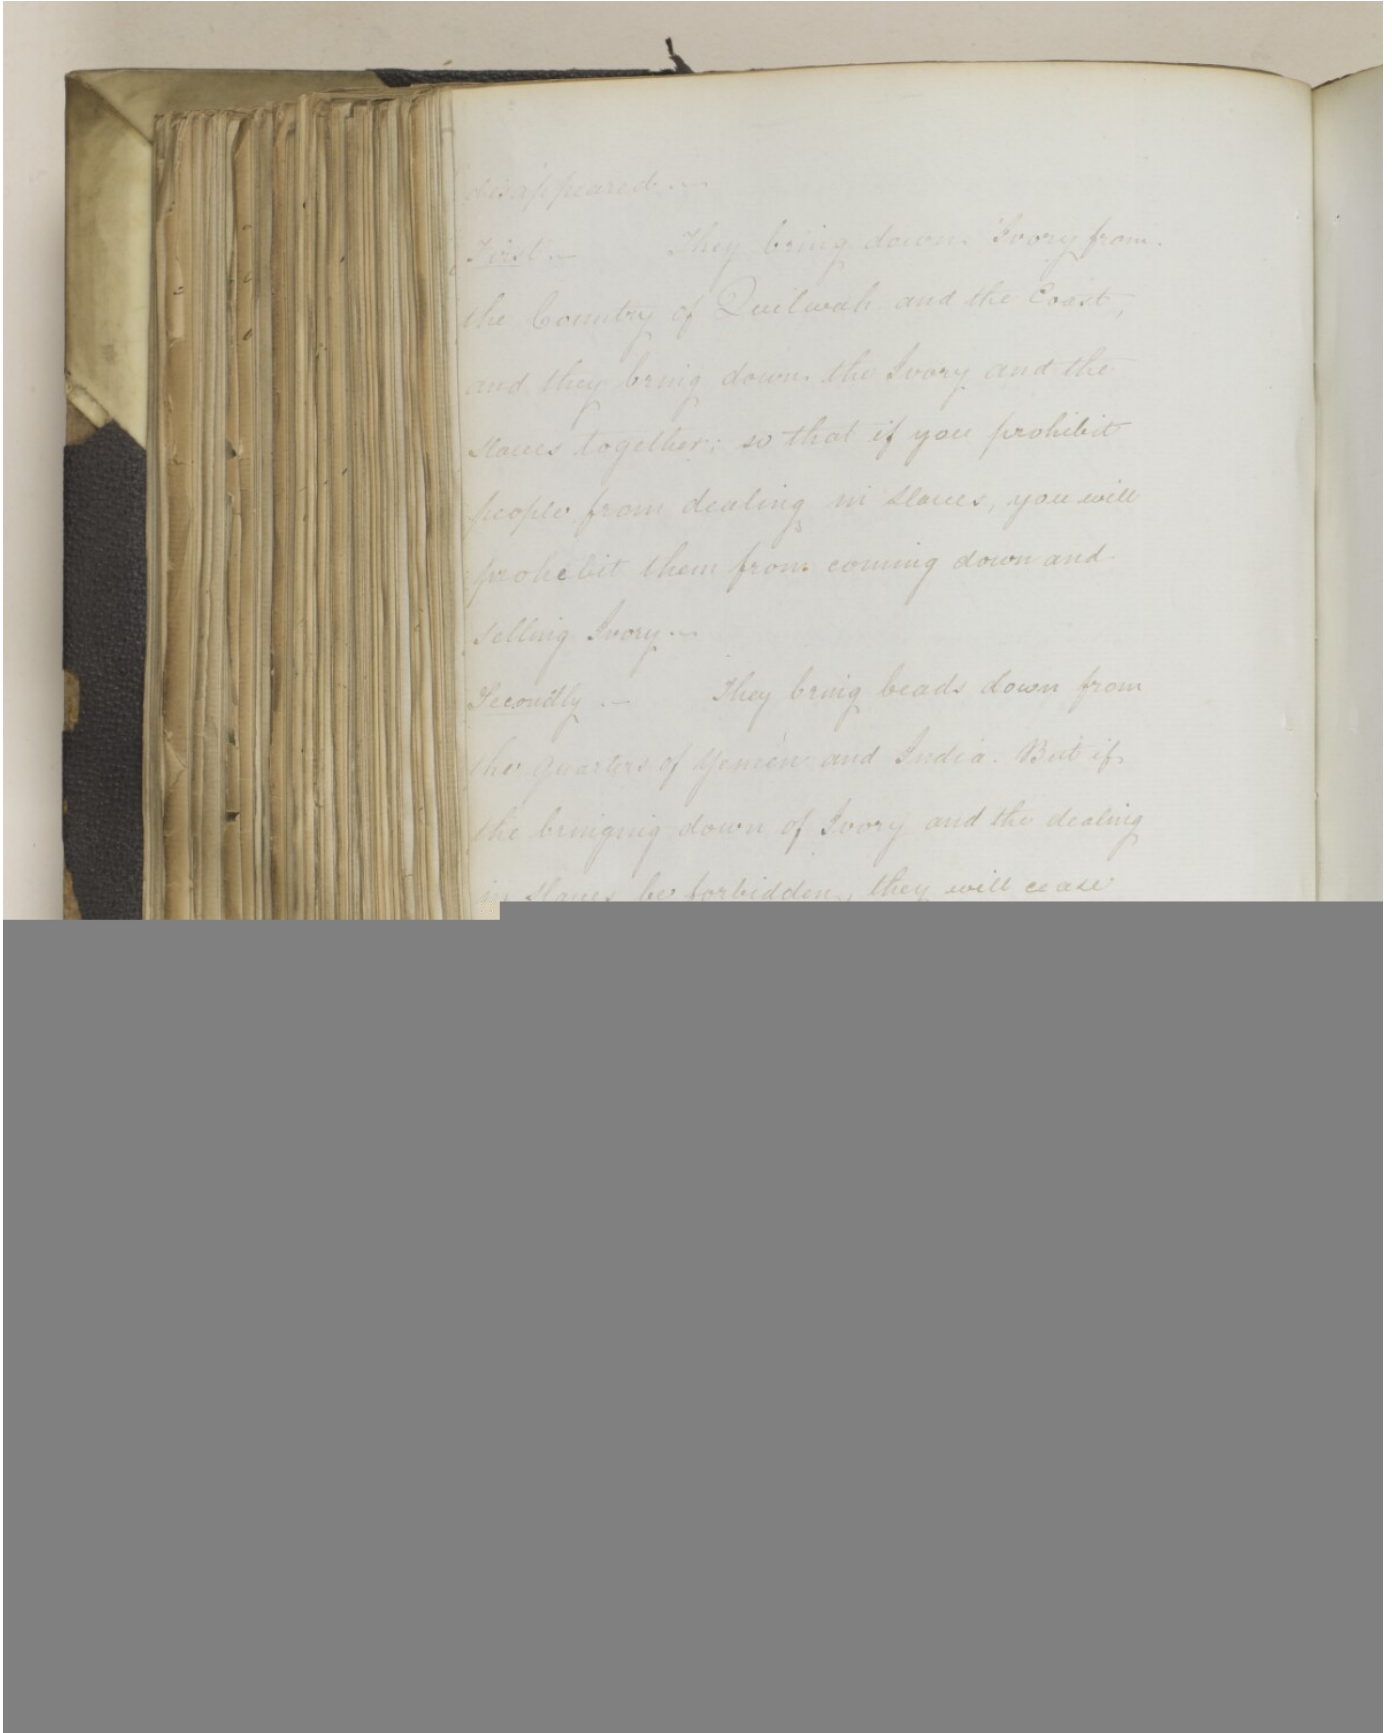 disappeared.—
First.— They bring down Ivory from
the Country of Quilwah and the Coast,
and they bring down the Ivory and the
slaves together; so that if you prohibit
people from dealing in slaves, you will
prohibit them from coming down and
selling Ivory.—
Secondly.— They bring beads down from
the quarters of Yemen and India. But if
the bringing down of Ivory and the dealing
in slaves be forbidden, they will cease